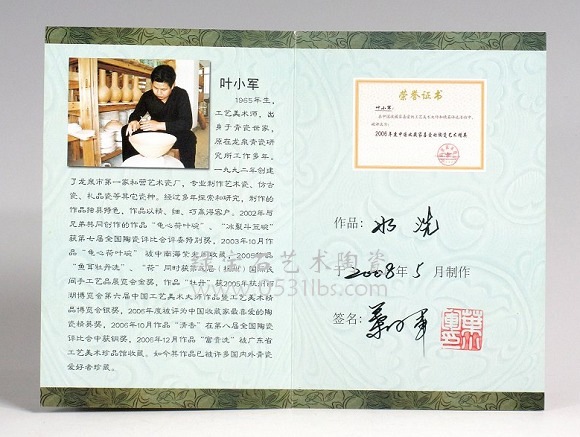 叶小军
1965年生，
工艺美术师，出
身于青瓷世家，
原在龙泉青瓷研
究所工作多年，
一九九二年创建
了龙泉市第一家私营艺术瓷厂，专业制作艺术瓷、仿古
瓷、礼品瓷等其它瓷种。经过多年探索和研究，制作的
作品独具特色，作品以精、细、巧赢得客户。2002年与
兄弟共同创作的作品“龟心荷叶碗”、“冰裂斗笠碗”
获第七届全国陶瓷评比会评委特别奖，2003年10月作
品“龟心荷叶碗”被中南海紫光阁收藏，2005年作
品“鱼耳牡丹洗”、“荷”同时获第
间手工艺品展览会金奖，作品“牡丹”获2005年杭州西
湖博览会第六届中国工艺美术大师作品暨工艺美术精
品博览会银奖，2006年度被评为中国收藏家最喜爱的陶
瓷精品奖，2006年10月作品“清香”在第八届全国陶瓷
评比会中获铜奖，2006年12月作品“富贵洗”被广东省
工艺美术珍品馆收藏。如今其作品已被许多国内外青瓷
爱好者珍藏。
荣誉证书
叶小军：
2006年度中国收藏家喜爱的陶瓷艺术精品
作品：水洗
于2008年5月制作
签名：叶小军
绿宝石艺术陶瓷
www.0531lbs.com